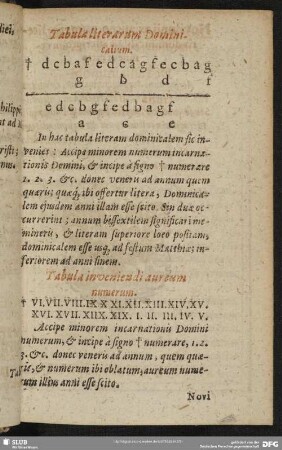 Tabula literarum Domini-
calium.
† dcbafedcagfecbag
g b d f
edcbgfedbagf
a c e
In hac tabula literam dominicalem sic in-
venies: Accipe minorem numerum incarna-
tionis Domini, & incipe à signo † numerare
1. 2. 3. &c. donec veneris ad annum quem
quæris; quæq́; ibi offertur litera, Dominica-
lem ejusdem anni illam esse scito. Sin duæ oc-
currerint; annum bissextilem significari me-
mineris, & literam superiore loco positam,
dominicalem esse usq́; ad festum Matthiæ; in-
feriorem ad anni finem.
Tabula inveniendi aureum
numerum.
† VI. VII. VIII. IX X XI. XII. XIII. XIV. XV.
XVI. XVII. XIIX. XIX. I. II. III. IV. V.
Accipe minorem incarnationis Domini
numerum, & incipe à signo † numerare, 1. 2.
3. &c. donec veneris ad annum, quem quæ-
ris, & numerum ibi oblatum, aureum nume-
rum illius anni esse scito.
Novi
SLUB
DFG